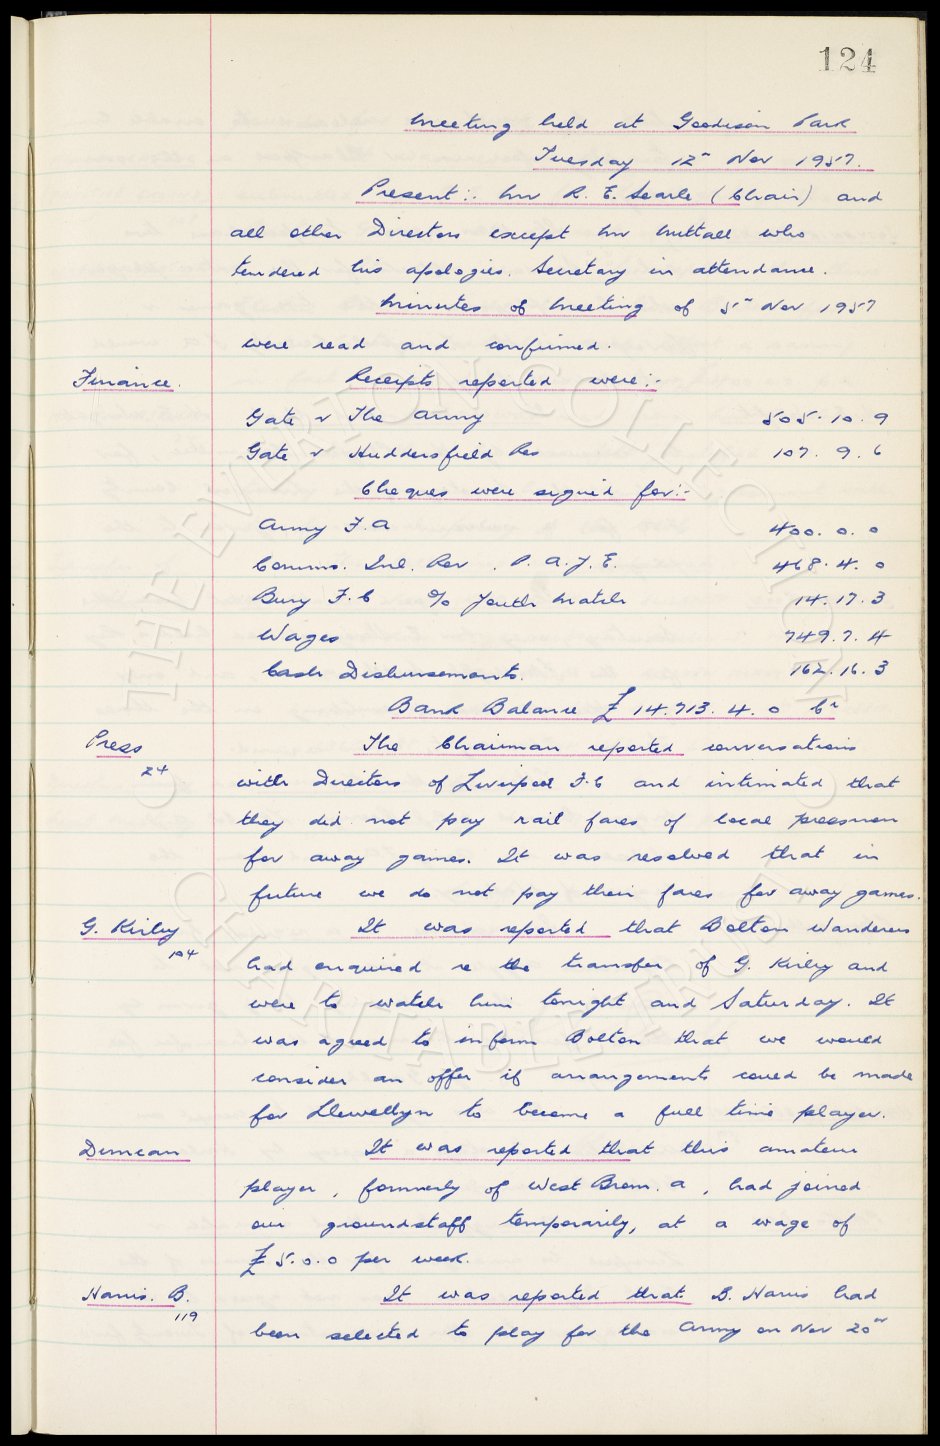 124
Meeting held at Goodison Park
Tuesday 12" Nov 1957.
Present:- Mr R. E. Searle (Chair) and
all other Directors except Mr Nuttall who
tendered his apologies. Secretary in attendance.
Minutes of Meeting of 5" Nov 1957
were read and confirmed.
Finance. Receipts reported were:-
Gate v The Army 505.10.9
Gate v Huddersfield Res 107.9.6
Cheques were signed for:-
Army F.A 400.0.0
Comms. Inl. Rev. P.A.Y.E. 468.4.0
Bury F.C % Youth Match 14.17.3
Wages 749.7.4
Cash Disbursements. 162.16.3
Bank Balance £14.713.4.0 Cr
Press The Chairman reported conversations
24 with Directors of Liverpool F.C and intimated that
they did not pay rail fares of local pressmen
for away games. It was resolved that in
future we do not pay their fares for away games.
G. Kirby It was reported that Bolton Wanderers
104 had enquired re the transfer of G. Kirby and
were to watch him tonight and Saturday. It
was agreed to inform Bolton that we would
consider an offer if arrangements could be made
for Llewellyn to become a full time player.
Duncan It was reported that this amateur
player, formerly of West Brom. A, had joined
our groundstaff temporarily, at a wage of
£5.0.0 per week.
Harris. B. It was reported that B. Harris had
119 been selected to play for the Army on Nov 20"
THE EVERTON COLLECTION
CHARITABLE TRUST